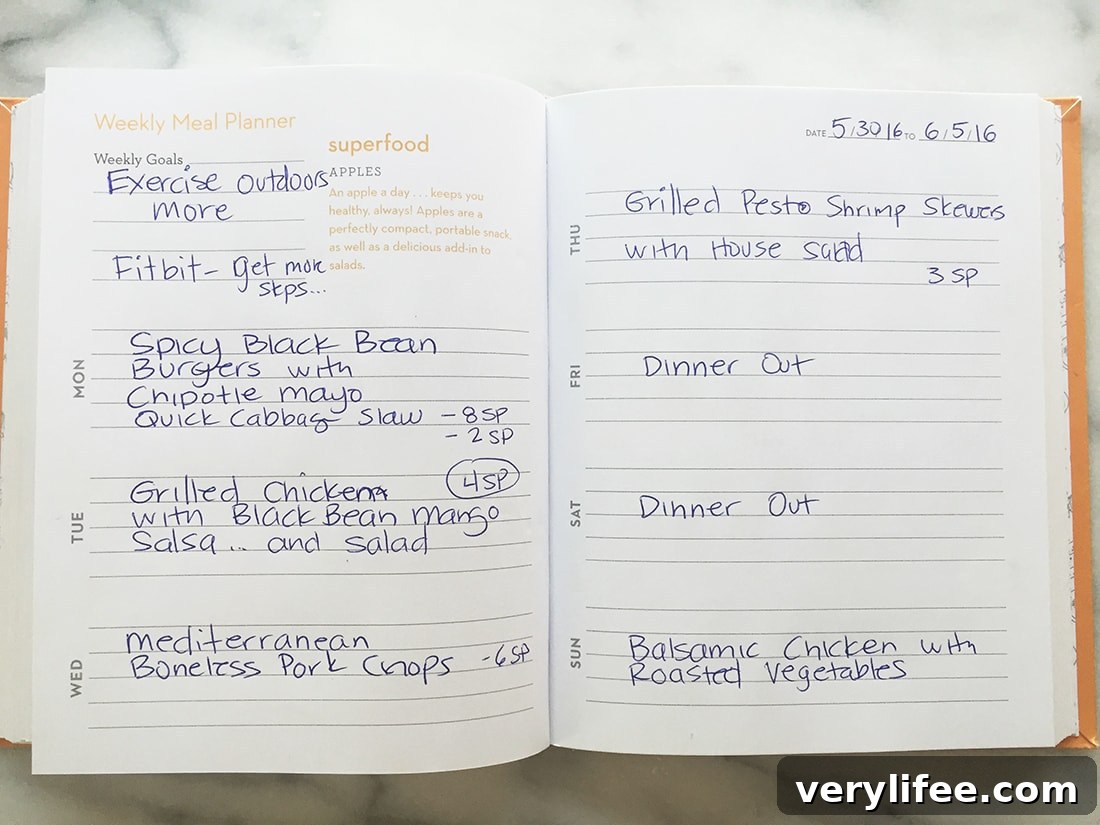 Weekly Meal Planner
Weekly Goals
Exercise Outdoors
More
Fitbit- get more
steps...
superfood
APPLES
An apple a day . . . keeps you
healthy, always! Apples are a
perfectly compact, portable snack,
as well as a delicious add-in to
salads.
MON
Spicy Black Bean
Burgers with
Chipotle mayo
Quick Cabbage Slaw - 8 SP
- 2 SP
TUE
Grilled Chicken 4 SP
with Black Bean mango
Salsa... and salad
WED
mediterranean
Boneless Pork Chops - 6 SP
DATE 5/30/16 TO 6/5/16
THU
Grilled Pesto Shrimp Skewers
with House salad
3 SP
FRI
Dinner Out
SAT
Dinner Out
SUN
Balsamic Chicken with
Roasted Vegetables
verylifee.com